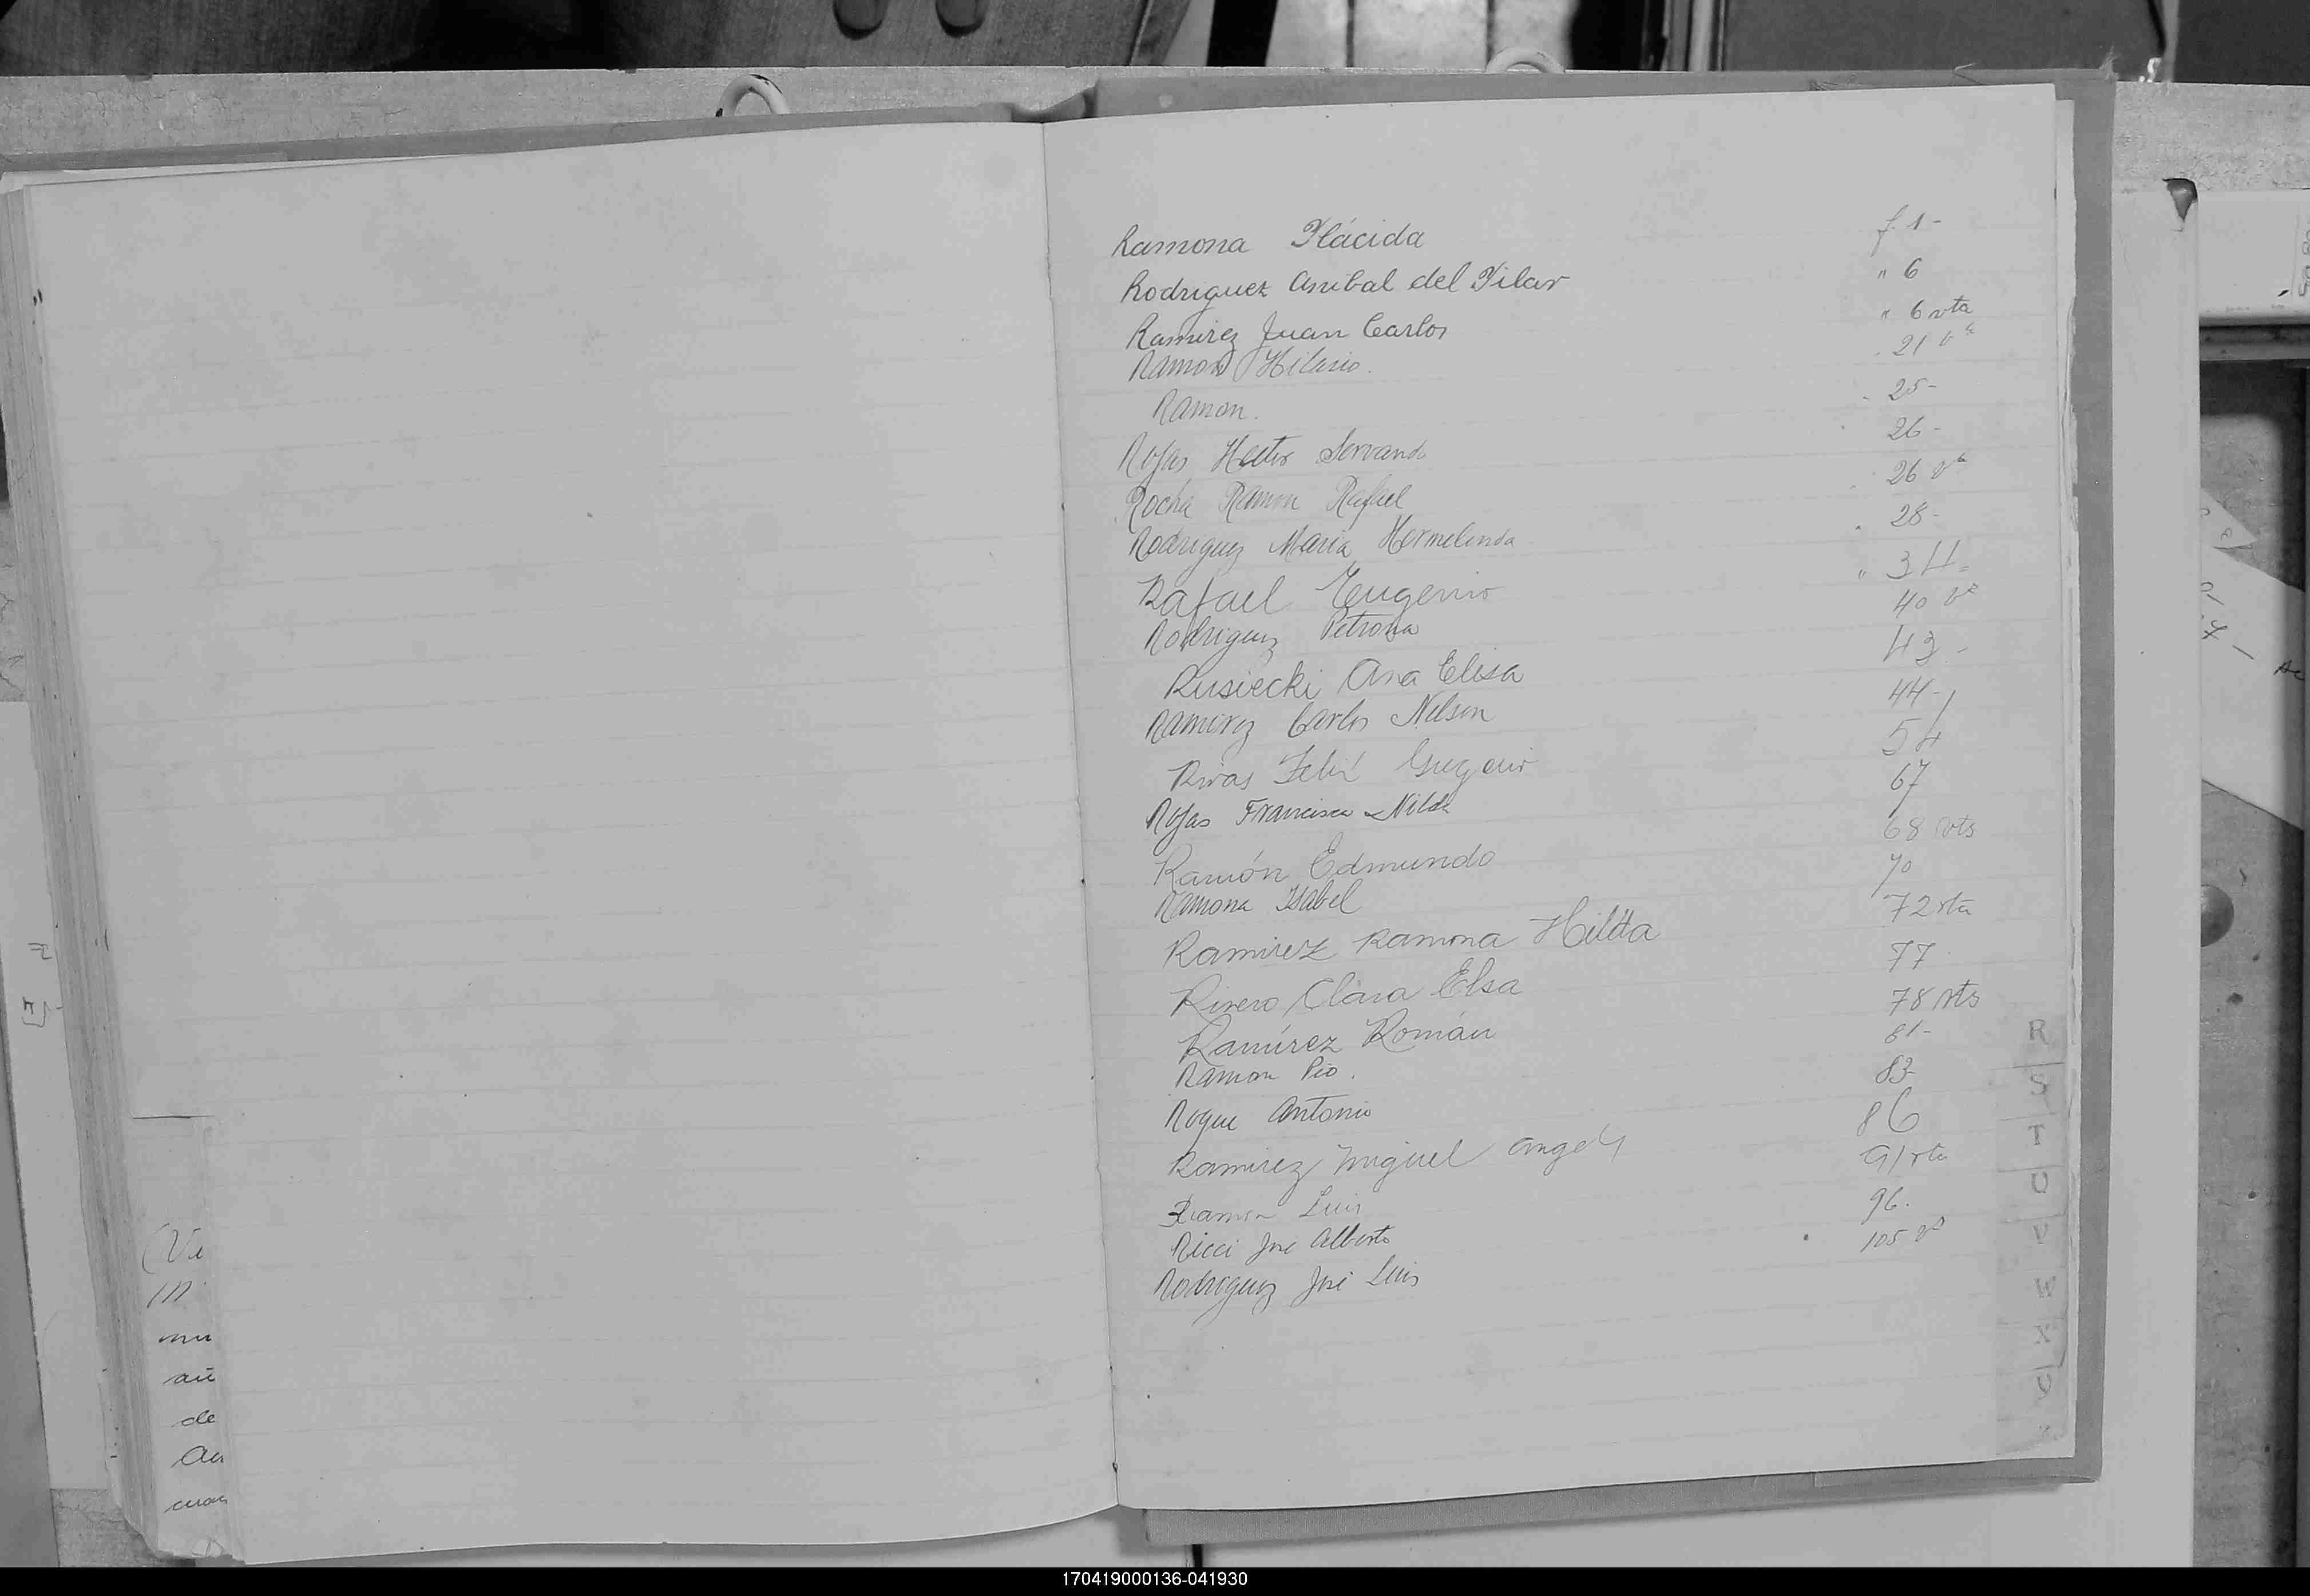 Ramona Plácida f. 1-
Rodriguez Anibal del Pilar " 6
Ramirez Juan Carlos " 6 vta
Ramon Hilario. 21 vª
Ramon. 25-
Rojas Hector Servando 26-
Rocha Ramon Rafael 26 vª
Rodriguez Maria Hermelinda 28-
Rafael Eugenio " 34
Rodriguez Petrona 40 vª
Rusiecki Ana Elisa 43-
Ramirez Carlos Nelson 44-
Rivas Gregorio 54
Rojas Francisca Nilda 67
Ramón Edmundo 68 vta
Ramona Isabel 70
Ramirez Ramona Hilda 72 vta
Rivero Clara Elsa 77
Ramírez Román 78 vta
Ramon Pio. 81-
Roque Antonio 83-
Ramirez Miguel Angel 86
Ramon Luis 91 vta
Ricci José Alberto 96.
Rodriguez José Luis 105 vª
R
S
T
U
V
W
X
Y
mu
de
170419000136-041930